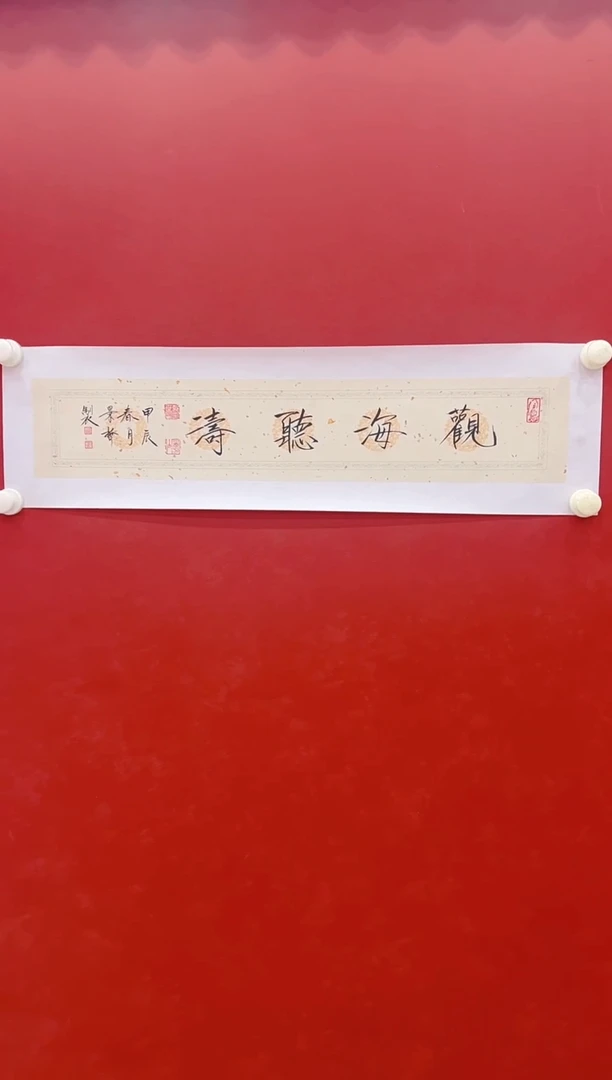 觀海聽濤
甲辰
春月
景
製